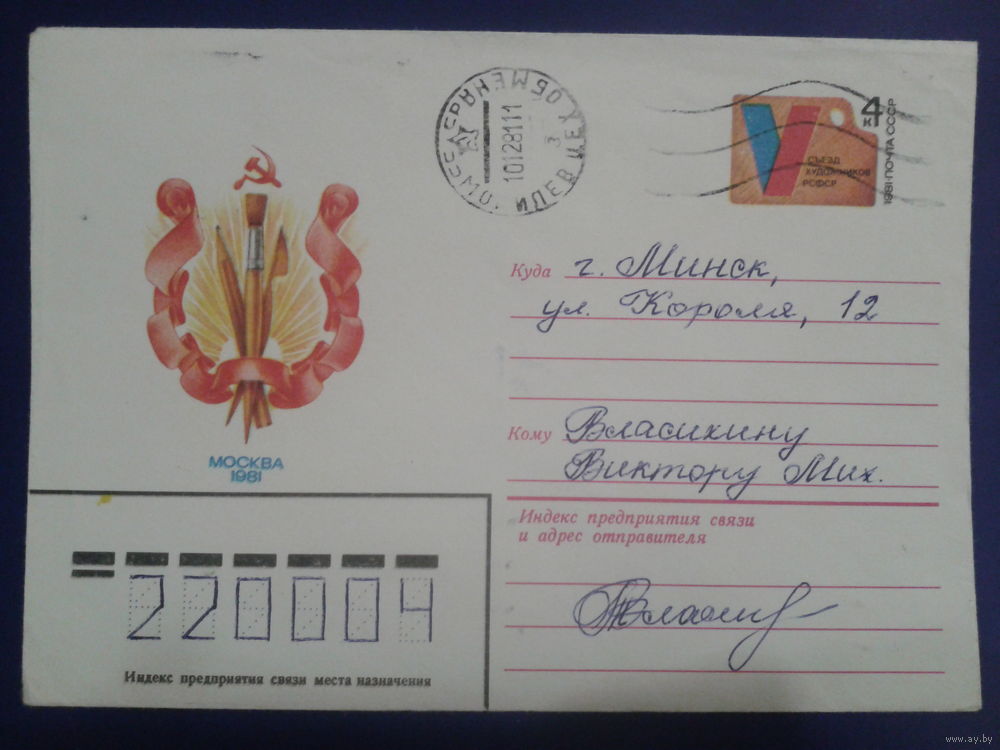 4
К
СЪЕЗД
ХУДОЖНИКОВ
РСФСР
1981·ПОЧТА СССР
1012811 1
МОСКВА
1981
Куда г. Минск,
ул. Короля, 12
Кому Власихину
Виктору Мих.
Индекс предприятия связи
и адрес отправителя
220004
Индекс предприятия связи места назначения
www.ay.by